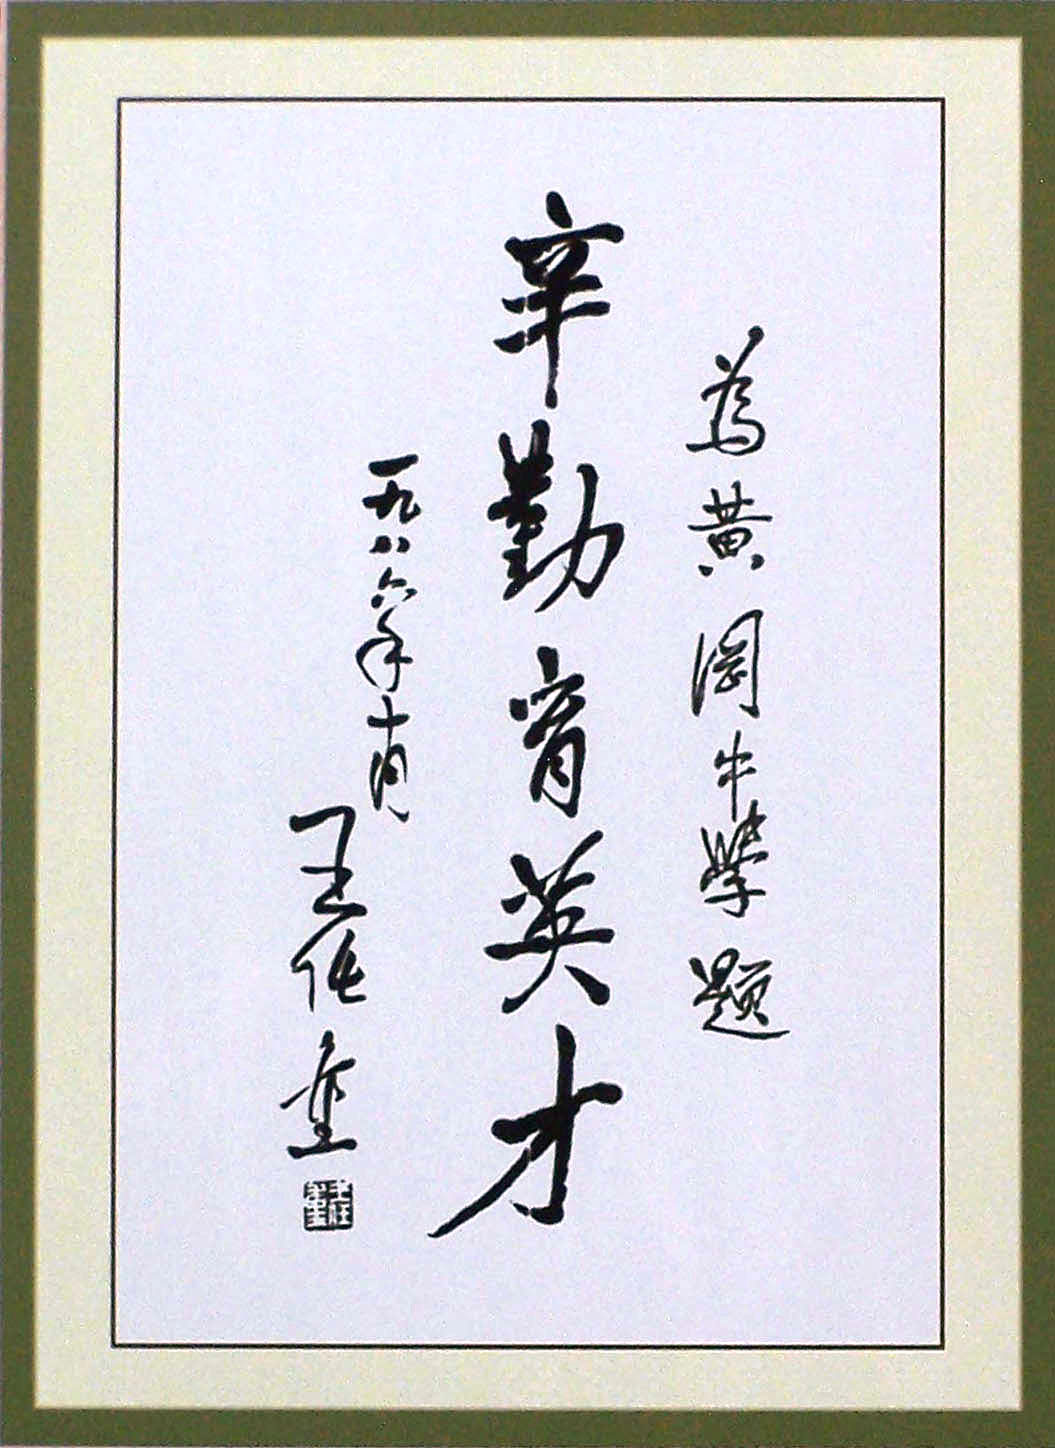 為黃岡中學題
辛勤育英才
一九八六年十月
王任重